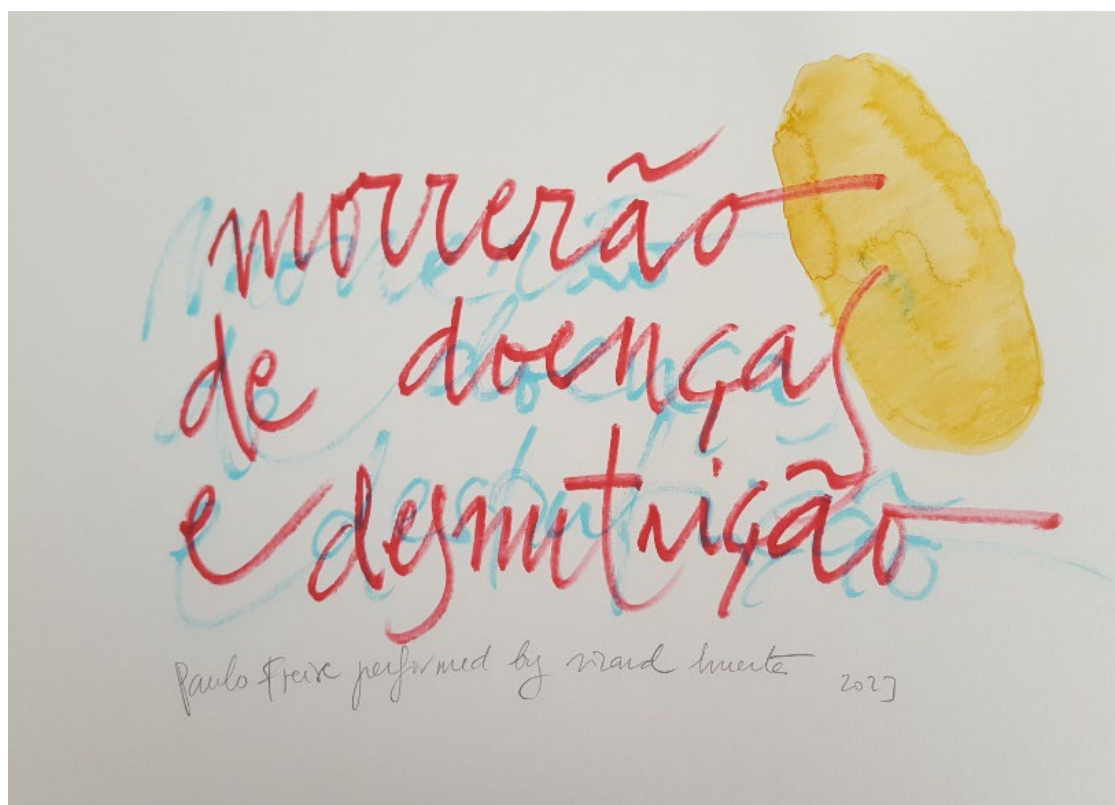 morrerão
de doenças
e desnutrição
Paulo Freire performed by ricard huerta 2023